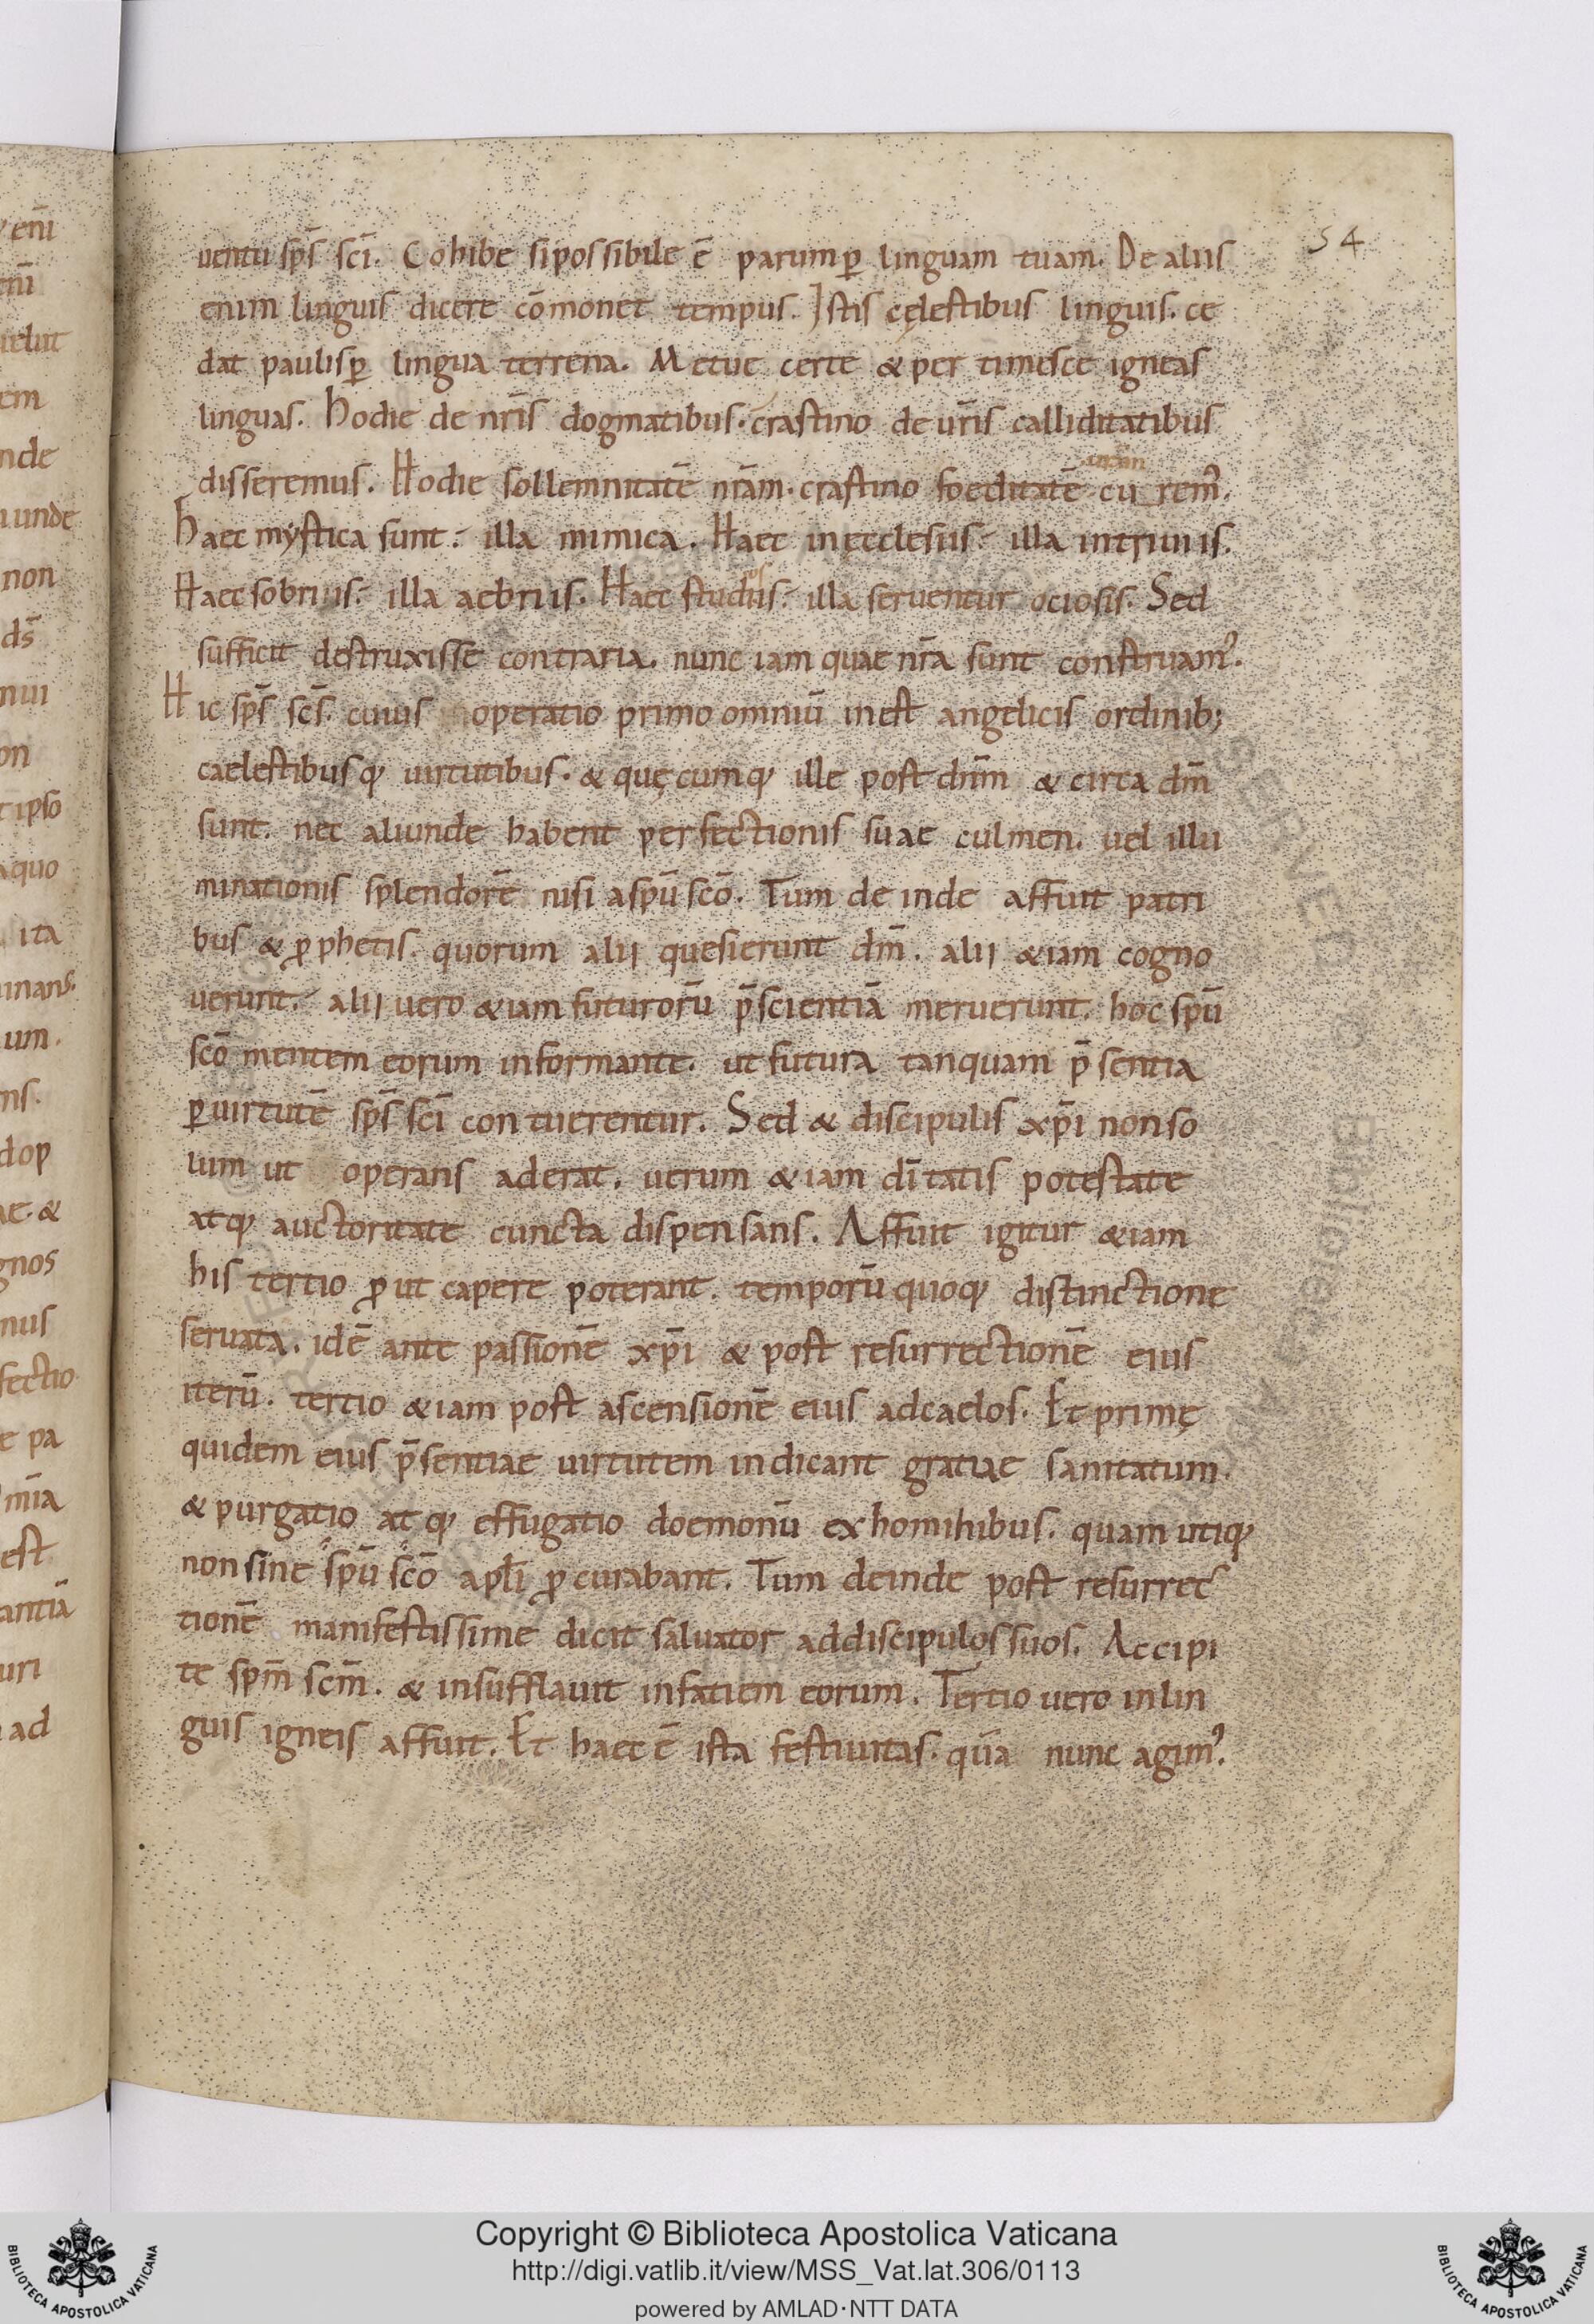 54
uentu sp̄s sc̄i. Cohibe si possibile ē parump̄ linguam tuam. De aliis
enim linguis dicere cōmonet tempus. Istis cęlestibus linguis. ce
dat paulisp̄ lingua terrena. Metue certe & per timesce igneas
linguas. Hodie de nr̄is dogmatibus. crastino de ur̄is calliditatibus
disseremus. Hodie sollemnitatē nr̄am. crastino foeditatē
Haec mystica sunt: illa mimica. Haec in ęcclesiis: illa intriuiis.
Haec sobriis: illa aebriis. Haec studiis: illa seruentur ociosis. Sed
sufficit destruxisse contraria. nunc iam quae nr̄a sunt construam᾿.
Hic sp̄s sc̄s. cuius operatio primo omniū inest angelicis ordinib;
caelestibusq; uirtutibus. & quęcumq; ille post dn̄m & circa dm̄
sunt. nec aliunde habent perfectionis suae culmen. uel illu
minationis splendorē nisi a sp̄u sc̄o. Tum de inde affuit patri
bus & ꝓphetis. quorum alii quesierunt dm̄. alii &iam cogno
uerunt. alii uero &iam futurorū p̄scientiā meruerunt. hoc sp̄u
sc̄o mentem eorum informante. ut futura tanquam p̄sentia
ꝑ uirtutē sp̄s sc̄i contuerentur. Sed & discipulis xp̄i non so
lum ut operans aderat. uerum &iam dī tatis potestate
atq; auctoritate cuncta dispensans. Affuit igitur &iam
his tertio ꝓut capere poterant. temporū quoq; distinctione
seruata. idē ante passionē xp̄i & post resurrectionē eius
iterū. tertio &iam post ascensionē eius ad caelos. Et primę
quidem eius p̄sentiae uirtutem indicant gratiae sanitatum.
& purgatio atq; effugatio doemonū ex hominibus. quam utiq;
non sine sp̄u sc̄o apl̄i ꝓcurabant. Tum deinde post resurrec
tionē manifestissime dicit saluator ad discipulos suos. Accipi
te sp̄m sc̄m. & insufflauit in fatiem eorum. Tertio uero in lin
guis igneis affuit. Et haec ē ista festiuitas. quā nunc agim᾿.
Copyright © Biblioteca Apostolica Vaticana
http://digi.vatlib.it/view/MSS_Vat.lat.306/0113
powered by AMLAD·NTT DATA
BIBLIOTECA APOSTOLICA VATICANA
BIBLIOTECA APOSTOLICA VATICANA